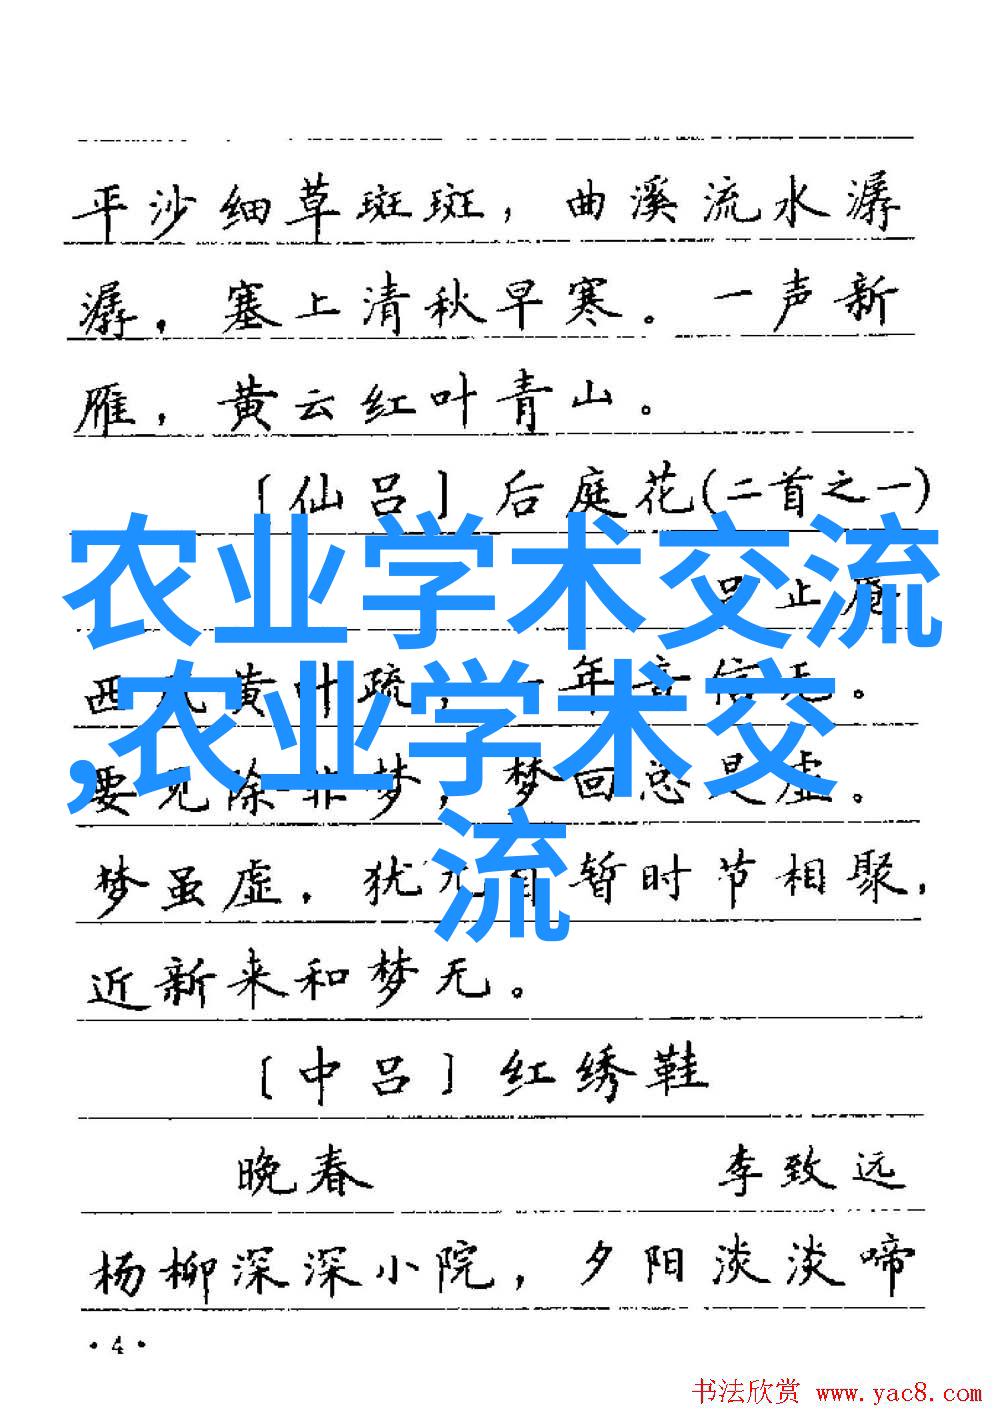 平沙细草斑斑，曲溪流水潺
潺，塞上清秋早寒。一声新
雁，黄云红叶青山。
〔仙吕〕后庭花(二首之一)
吕止庵
西风黄叶疏，一年音信无。
要见除非梦，梦回总是虚。
梦虽虚，犹兀自暂时节相聚，
近新来和梦无。
〔中吕〕红绣鞋
晚春 李致远
杨柳深深小院，夕阳淡淡啼
·4·
农业学术交流
,农业学术交
流
书法欣赏 www.yac8.com